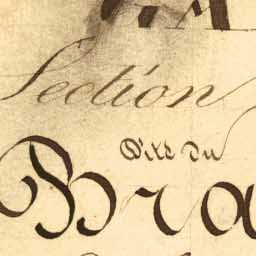 A
Section
Dite du
Bra